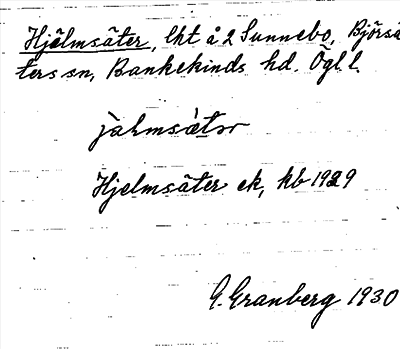 Hjälmsäter, lht å 2 Sunnebo, Björsä
ters sn, Bankekinds hd. Ögl l.
jalmsàtər
Hjelmsäter ek, kb 1929
G. Granberg 1930